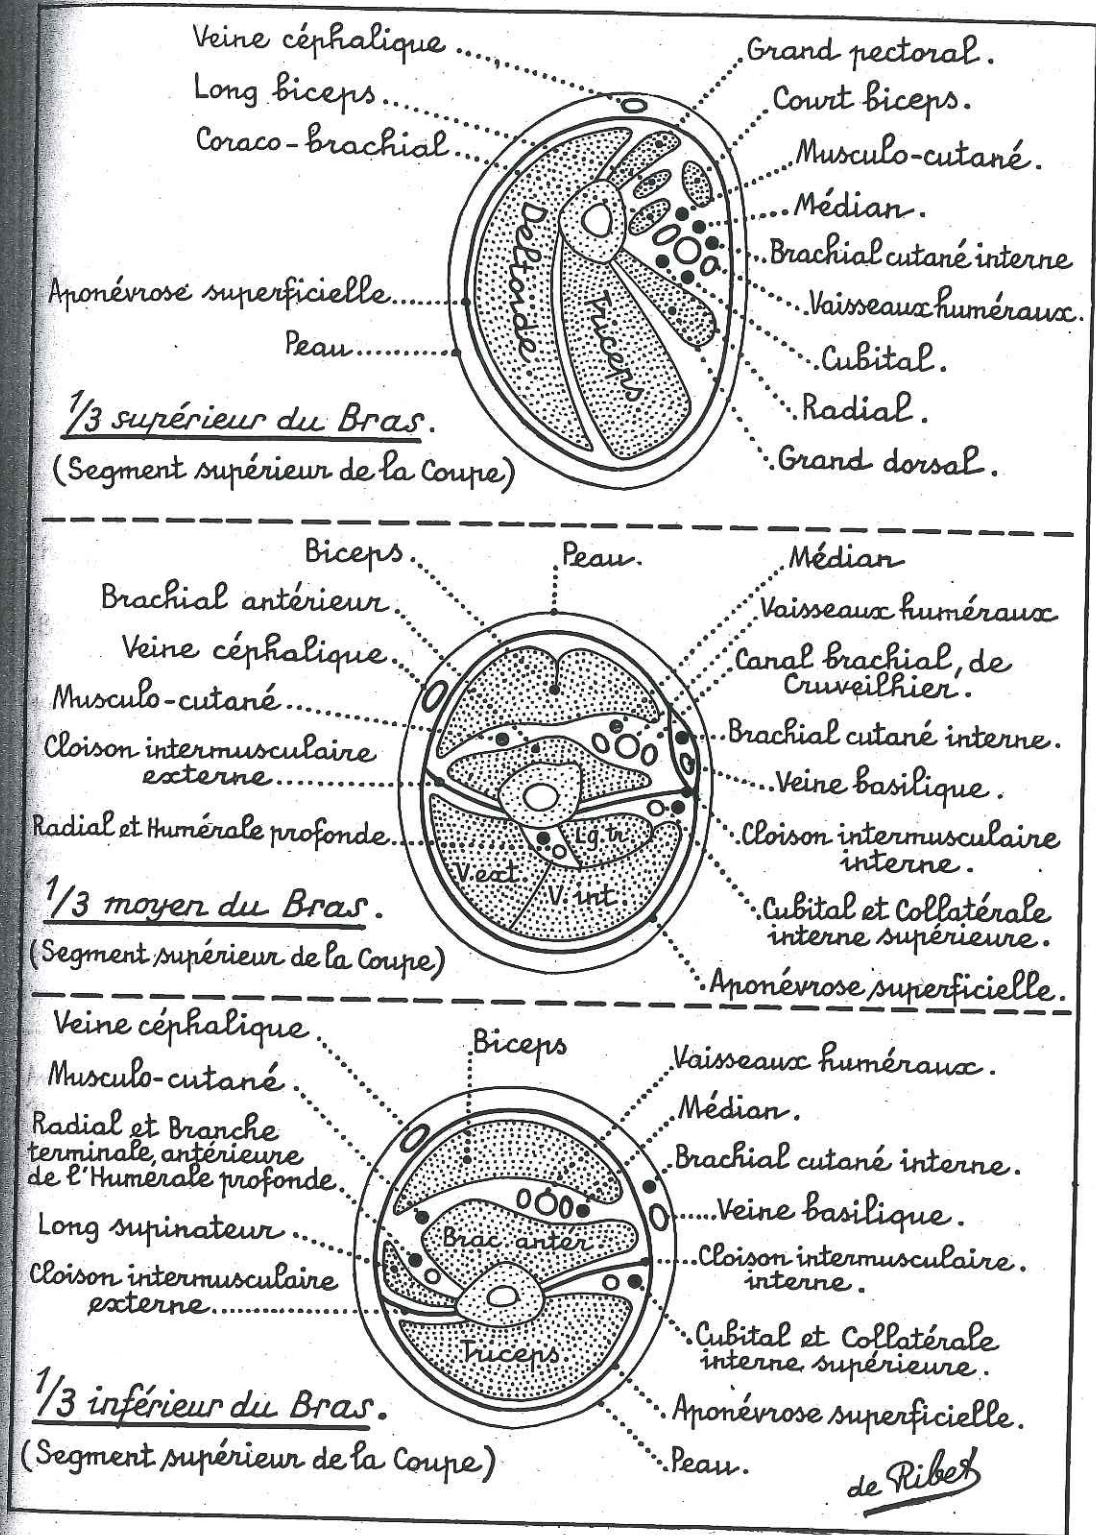 Veine céphalique
Long biceps
Coraco-brachial
Aponévrose superficielle
Peau
1/3 supérieur du Bras.
(Segment supérieur de la Coupe)
Grand pectoral.
Court biceps.
Musculo-cutané.
Médian.
Brachial cutané interne
Vaisseaux huméraux.
Cubital.
Radial.
Grand dorsal.
Deltoïde.
Triceps.
Biceps.
Brachial antérieur
Veine céphalique
Musculo-cutané
Cloison intermusculaire
externe
Radial et Humérale profonde
1/3 moyen du Bras.
(Segment supérieur de la Coupe)
Peau.
Médian
Vaisseaux huméraux
Canal brachial, de
Cruveilhier.
Brachial cutané interne.
Veine basilique.
Cloison intermusculaire
interne.
Cubital et Collatérale
interne supérieure.
Aponévrose superficielle.
Lg. tr.
V. ext.
V. int.
Veine céphalique
Musculo-cutané
Radial et Branche
terminale, antérieure
de l'Humérale profonde
Long supinateur
Cloison intermusculaire
externe
1/3 inférieur du Bras.
(Segment supérieur de la Coupe)
Biceps
Vaisseaux huméraux.
Médian.
Brachial cutané interne.
Veine basilique.
Cloison intermusculaire.
interne.
Cubital et Collatérale
interne, supérieure.
Aponévrose superficielle.
Peau.
Brac. anter
Triceps.
de Ribet